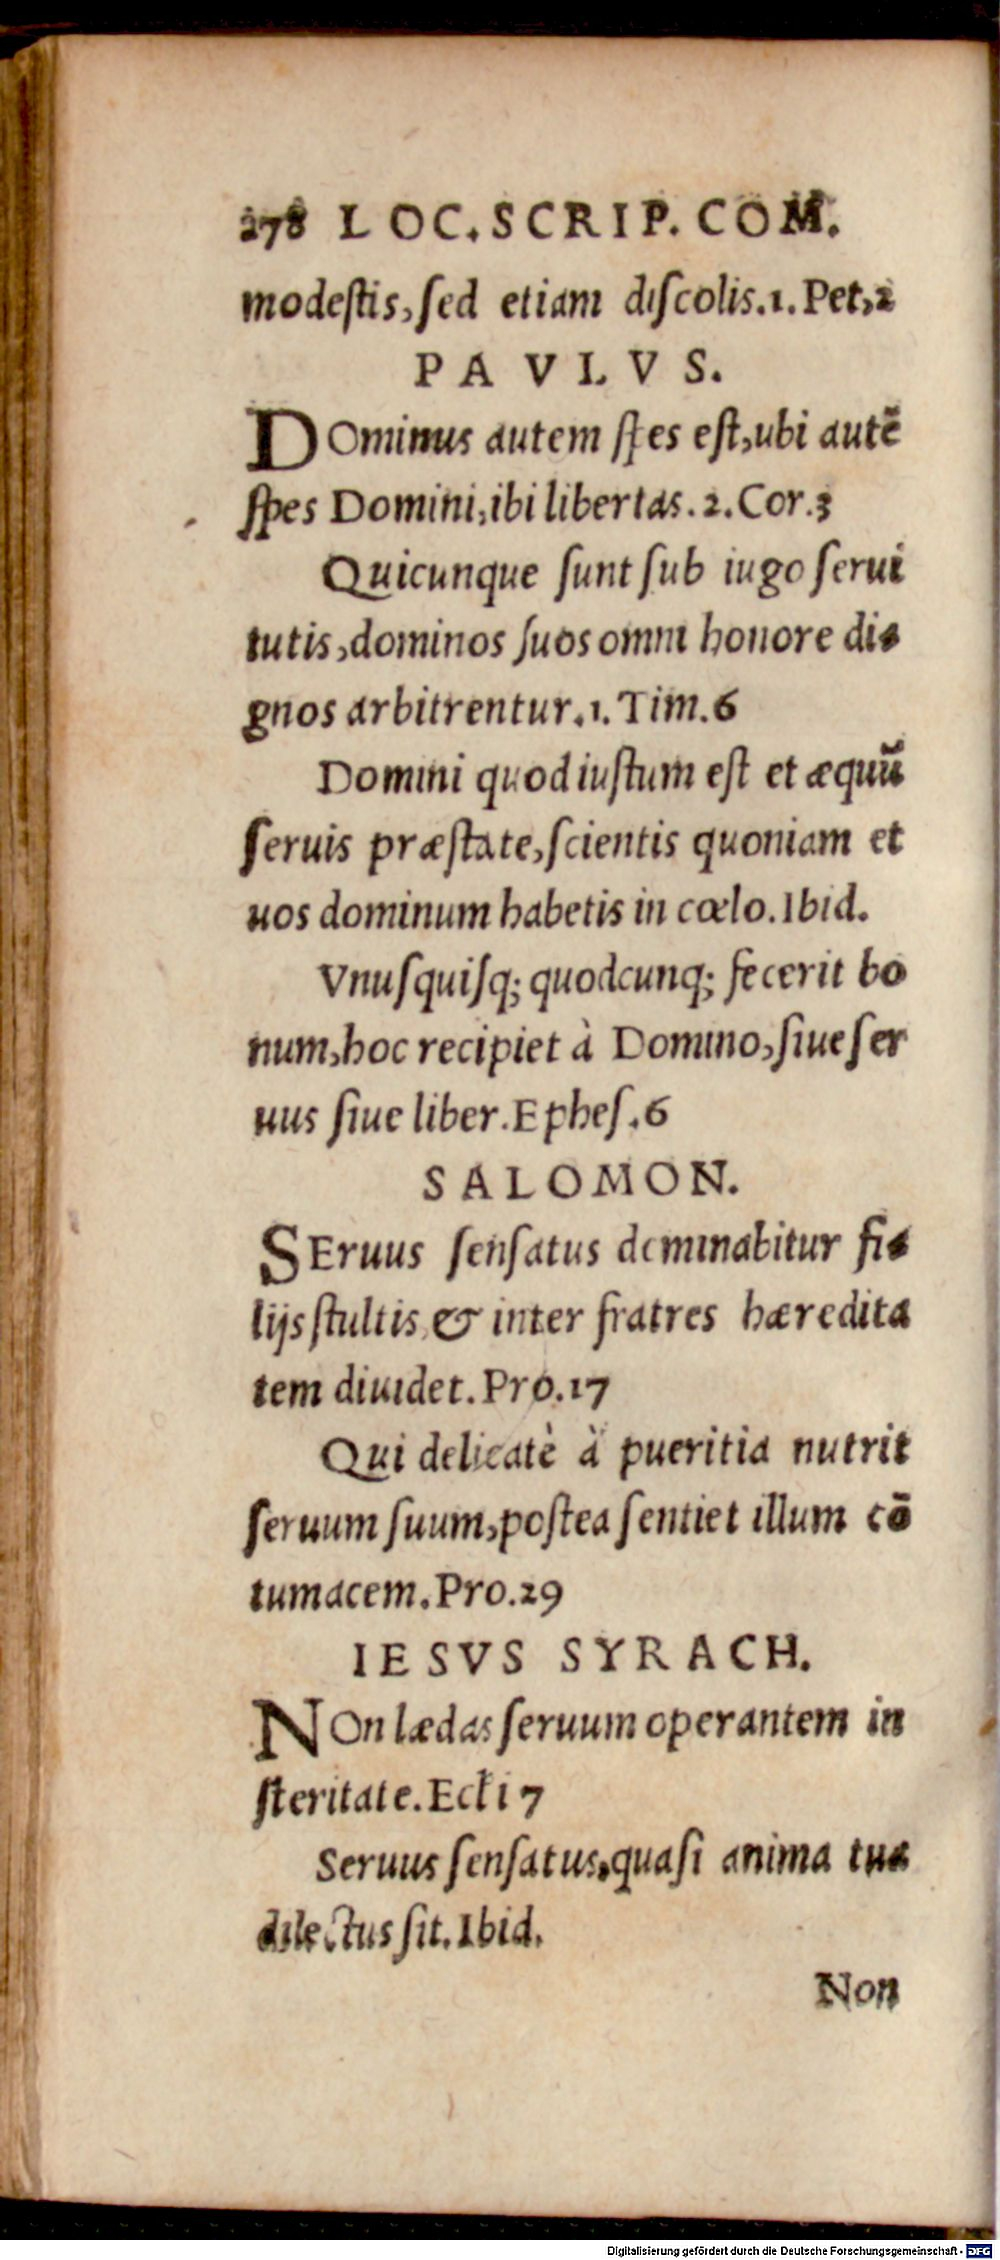 278 LOC. SCRIP. COM.
modeſtis, ſed etiam diſcolis. 1. Pet, 2
PAVLVS.
DOminus autem ſpes eſt, ubi autē
ſpes Domini, ibi libertas. 2. Cor. 3
Quicunque ſunt ſub iugo ſerui
tutis, dominos ſuos omni honore di⸗
gnos arbitrentur. 1. Tim. 6
Domini quod iuſtum eſt et æquū
ſeruis præſtate, ſcientis quoniam et
uos dominum habetis in cœlo. Ibid.
Vnuſquiſq; quodcunq; fecerit bo
num, hoc recipiet à Domino, ſiue ſer
uus ſiue liber. Epheſ. 6
SALOMON.
SEruus ſenſatus dominabitur fi⸗
lijs ſtultis, & inter fratres hæredita
tem diuidet. Pro. 17
Qui delicatè à pueritia nutrit
ſeruum ſuum, poſtea ſentiet illum cō
tumacem. Pro. 29
IESVS SYRACH.
NOn lædas ſeruum operantem in
ſteritate. Ecłi 7
Seruus ſenſatus, quaſi anima tua
dilectus ſit. Ibid.
Non
Digitalisierung gefördert durch die Deutsche Forschungsgemeinschaft - DFG